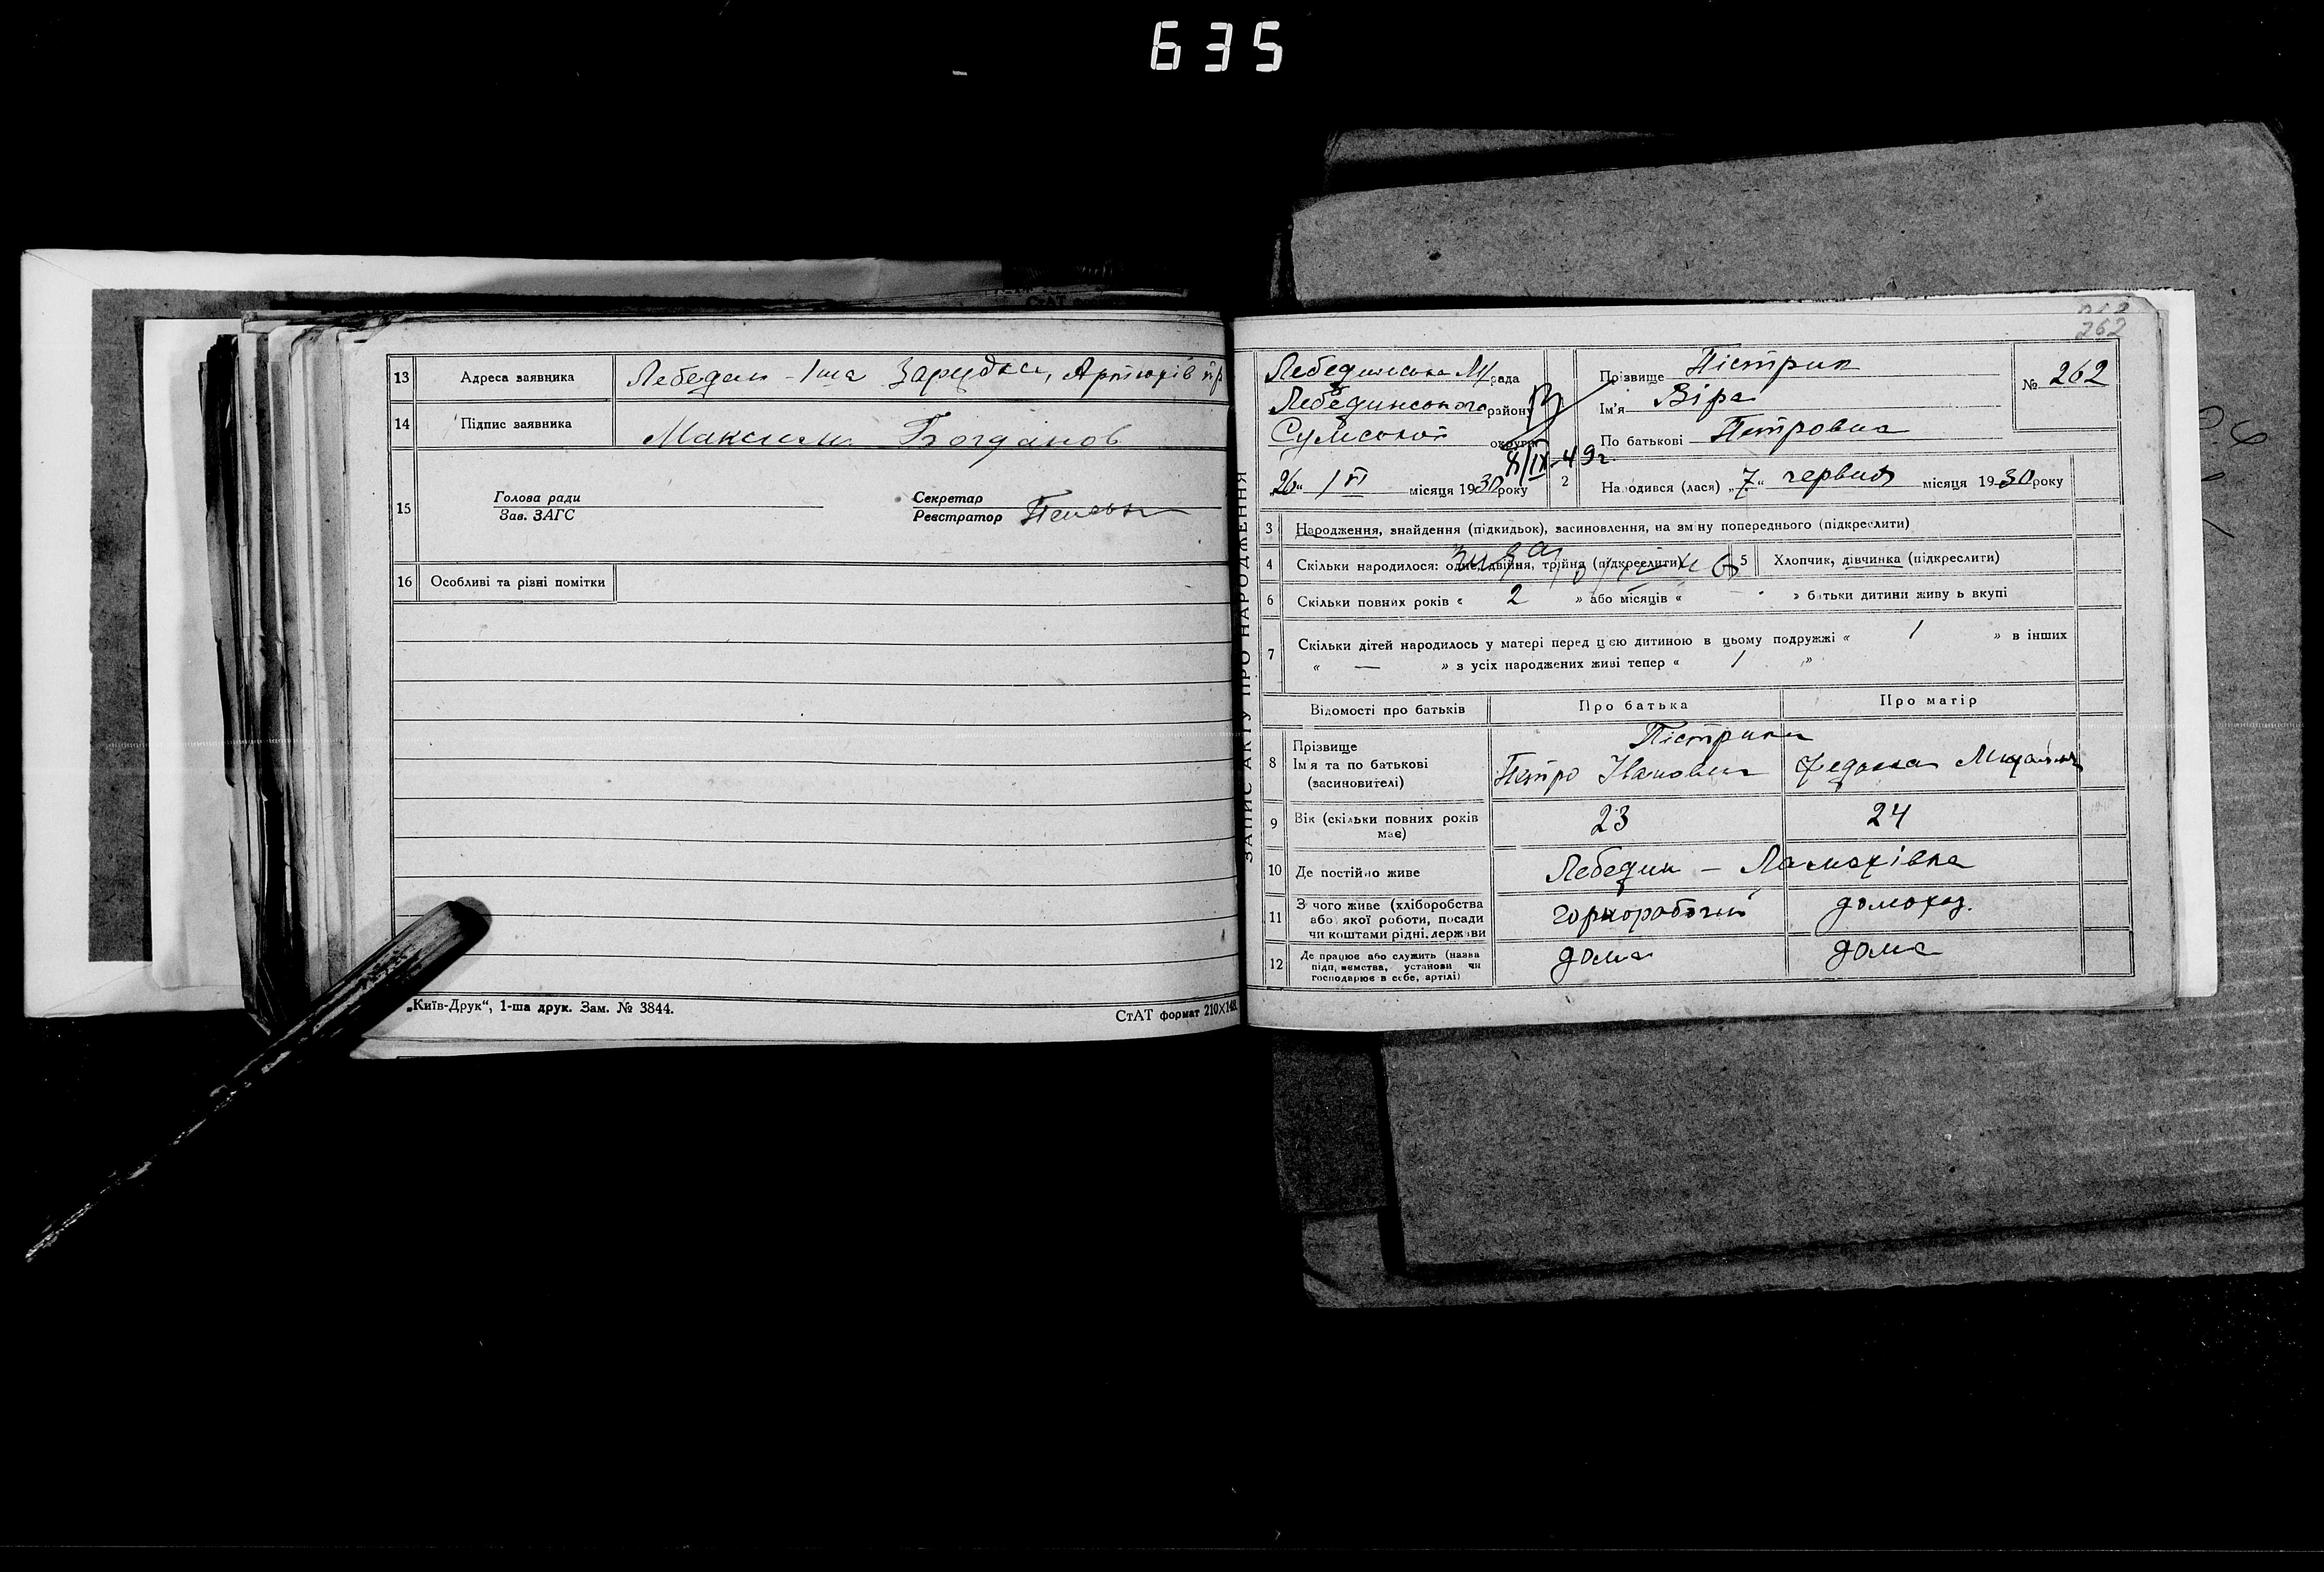 635
13 Адреса заявника Лебедин - 1ша Зарудка, Артюхів пр
14 Підпис заявника Максим Богданов
15 Голова ради Секретар
Зав. ЗАГС Реєстратор
16 Особливі та різні помітки
„Київ-Друк“, 1-ша друк. Зам. № 3844.
СтАТ формат 210×148
262
ЗАПИС АКТУ ПРО НАРОДЖЕННЯ
Лебединська М/рада
Лебединського району
Сумської округи
8/IX-49г.
„26“ VI місяця 1930 року
1 Прізвище Пістрик
Ім'я Віра
По батькові Петровна
№ 262
2 Народився (лася) „7“ червня місяця 1930 року
3 Народження, знайдення (підкидьок), васиновлення, на зміну попереднього (підкреслити)
4 Скільки народилося: одне, двійня, трійня (підкреслити)
5 Хлопчик, дівчинка (підкреслити)
6 Скільки повних років « 2 » або місяців « - » батьки дитини живуть вкупі
7 Скільки дітей народилось у матері перед цією дитиною в цьому подружжі « 1 » в інших
« — » з усіх народжених живі тепер « 1 »
Відомості про батьків Про батька Про матір
8 Прізвище Ім'я та по батькові (васиновителі) Пістрики
Петро Іванович Федосія
9 Вік (скільки повних років має) 23 24
10 Де постійно живе Лебедин - Ламахівка
11 З чого живе (хліборобства або якої роботи, посади чи коштами рідні, держави горноробочий домохаз.
12 Де працює або служить (назва підприємства, установи чи господарює в себе, артілі) дома дома